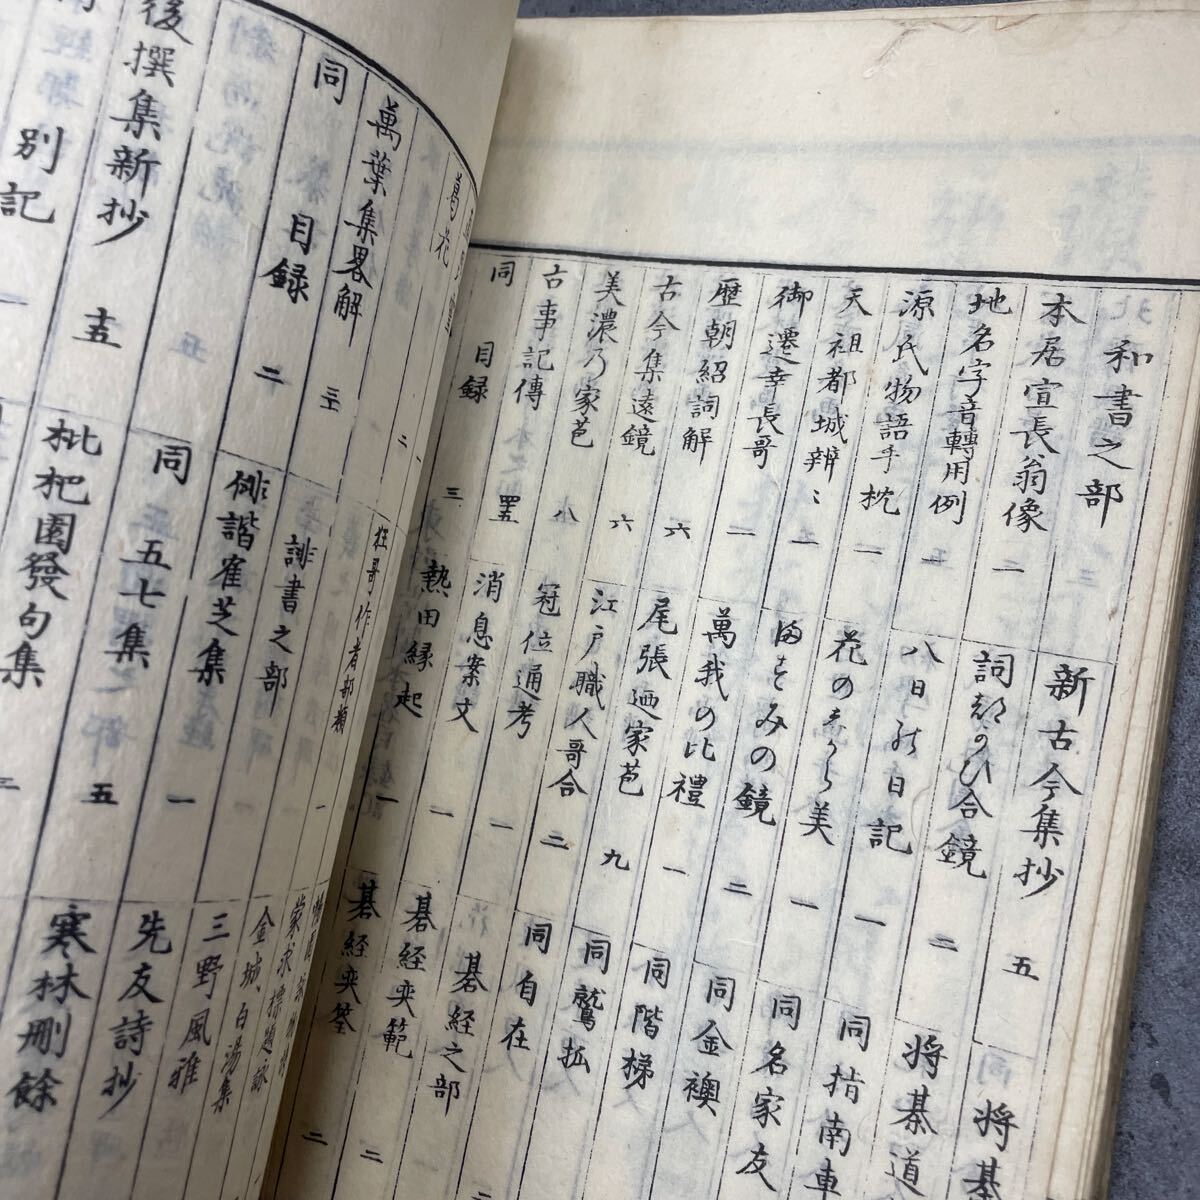 和書之部
本居宣長翁像 二
地名字音轉用例
源氏物語手枕 一
天祖都城辨〻 一
御遷幸長哥
歴朝紹詞解 六
古今集遠鏡 六
美濃乃家苞 八
古事記傳
同 目録 三
新古今集抄 五
詞 合鏡 二
八日 日記 一
花の 美 一
ますみの鏡 二
萬我の比禮 一
尾張廼家苞 九
江戸職人哥合 二
冠位通考 一
消息案文 一
熱田縁起 一
将棊
将棊道
同指南車
同名家友
同金襖
同階梯
同鷲抓
同自在
碁経之部
碁経奕範 二
碁経奕筌 二
葛花 二
萬葉集畧解
同 目録 二
後撰集新抄
別記 一
狂哥作者部類 一
誹書之部
俳諧隺芝集 一
同 五七集 五
枇杷園發句集 二
蒙求標題詠
金城白湯集
三野風雅
先友詩抄
寒林刪餘